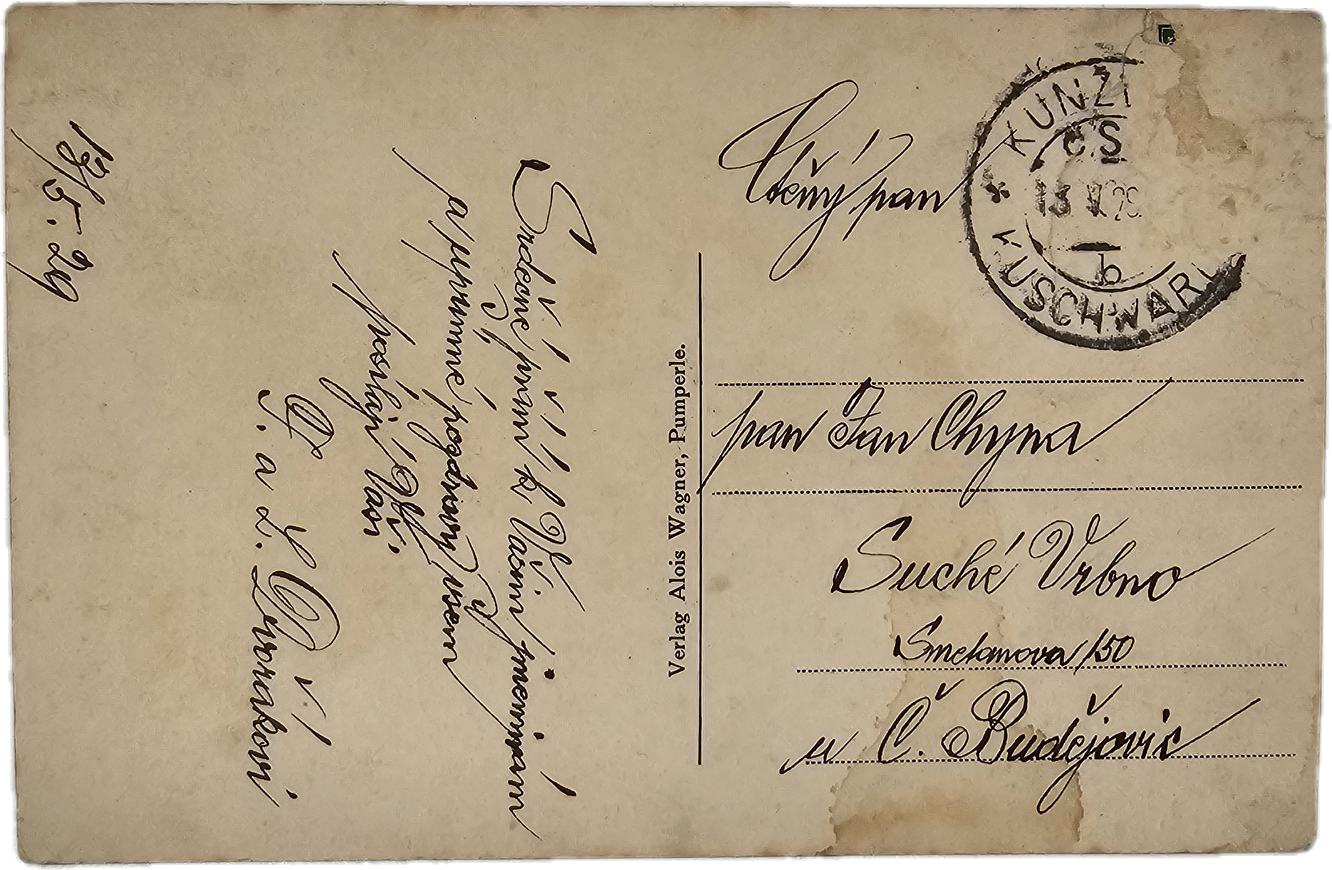 13/5.29
Srdečné přání k Vašim jmeninám
a upřímné pozdravy všem
posílají Vaši
G. a L. Dvořákovi
Verlag Alois Wagner, Pumperle.
Ctěný pan
KUNŽ
ČS
13 V 29
b
KUSCHWAR
pan Jan Chyna
Suché Vrbno
Smetanova 150
u Č. Budějovic